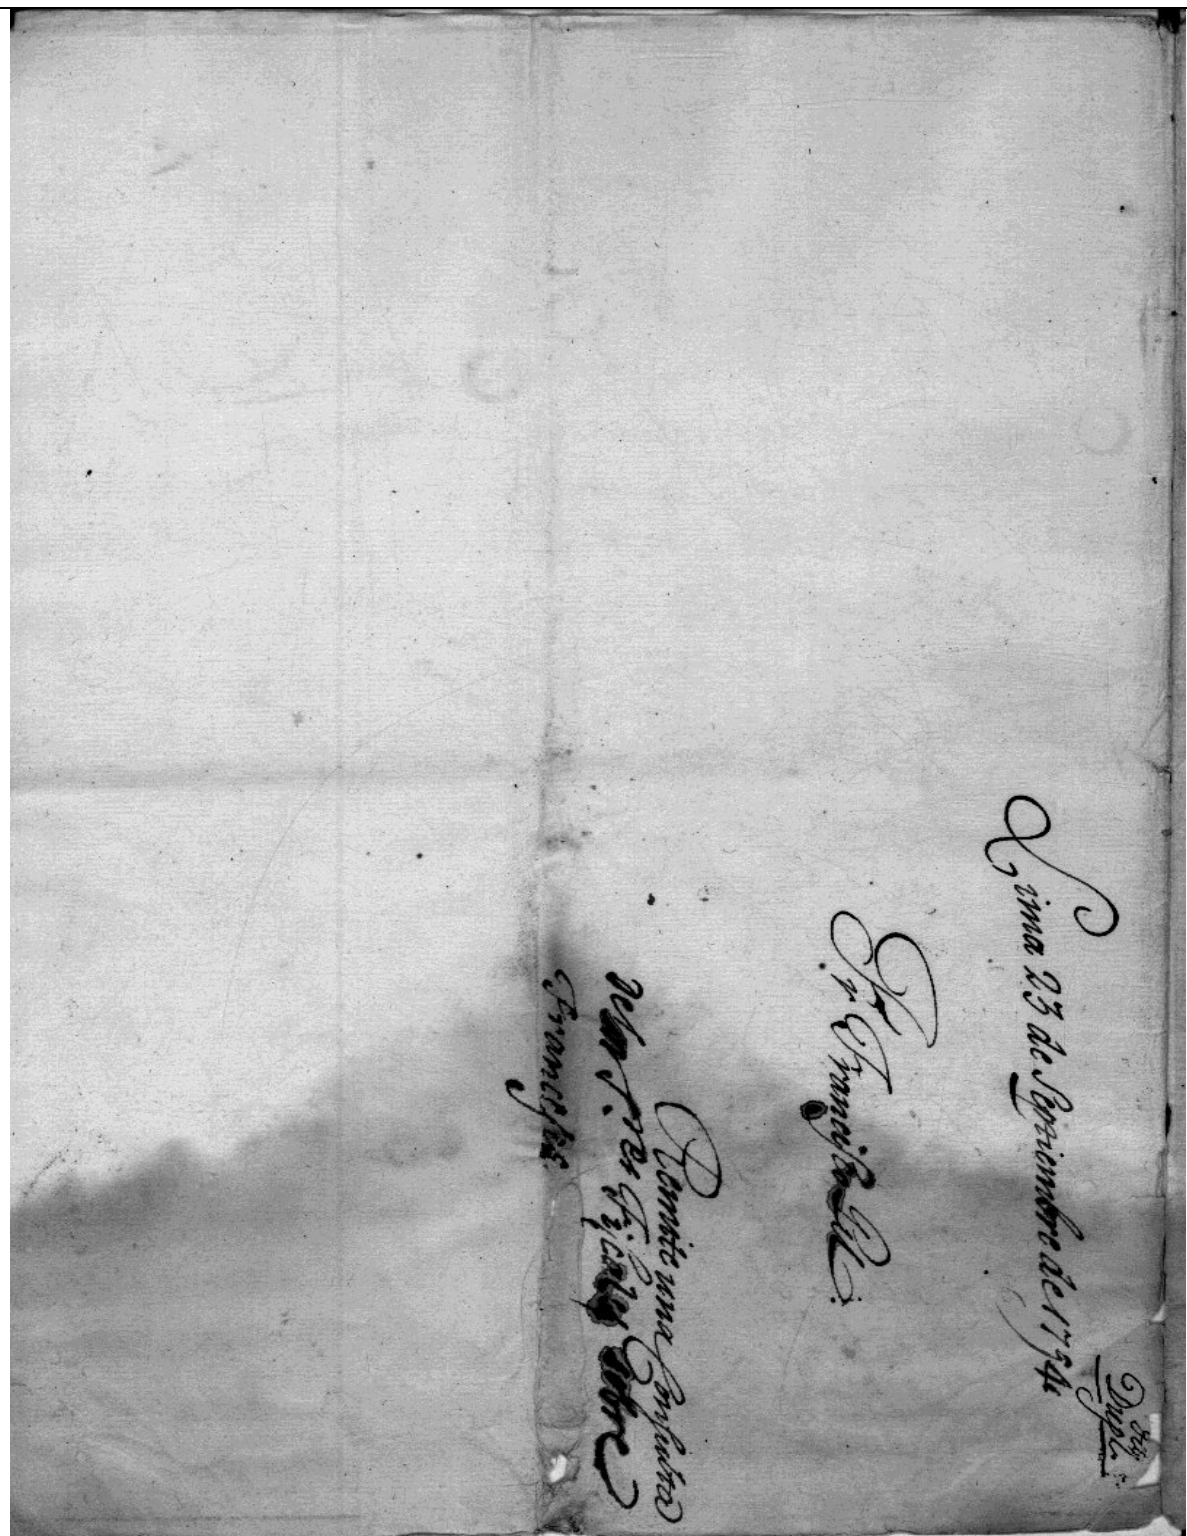 Dupl.
Lima 23 de Septiembre de 1754
Fr Francisco
Remite una Consulta
de los S.res Fiscales sobre
Franceses